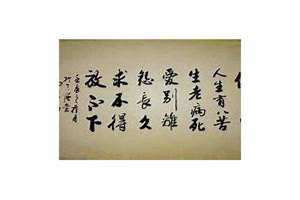 人生有八苦
生老病死
愛别離
怨長久
求不得
放不下